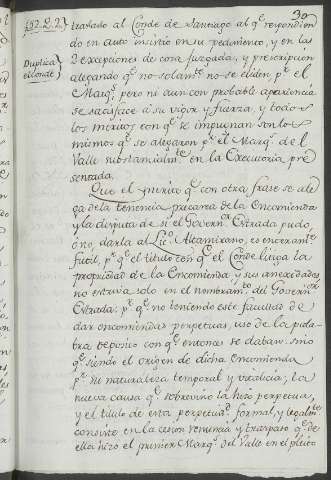 30
152.2.2.
Duplica
el Conde
traslado al Conde de Santiago al qe. respondien
do en auto insistió en su pedimento, y en las
2 excepciones de cosa juzgada, y prescripcion
alegando qe. no solamte. no se eliden pr. el
Marqs. pero ni aun con probable apariencia
se satisface à su vigor y fuerza, y todos
los meritos con qe. se impugnan son los
mismos qe. se alegaron pr. el Marqs. del
Valle substancialmte. en la Executoria pre
sentada.
Que el merito qe. con otra frase se ale
ga de la tenencia precaria de la Encomienda
y la disputa de si el Governor. Estrada pudo,
ó no, darla al Lic. Altamirano, es enteramte.
futil, pr. qe. el titulo con qe. el Conde funda la
propriedad de la Encomienda y sus anexidades
no estriva solo en el nombramto. del Governor.
Estrada, pr. qe. no teniendo este facultad de
dar encomiendas perpetuas, usó de la pala-
bra deposito con qe. entonces se daban, sino
qe. siendo el origen de dicha Encomienda
pr. su naturaleza temporal y vitalicia, la
nueva causa qe. sobrevino la hizo perpetua,
y el titulo de esta perpetuid. formal, y legalmte.
consiste en la cesion renuncia y traspaso qe. de
ella hizo el primer Marqs. del Valle en el pleito